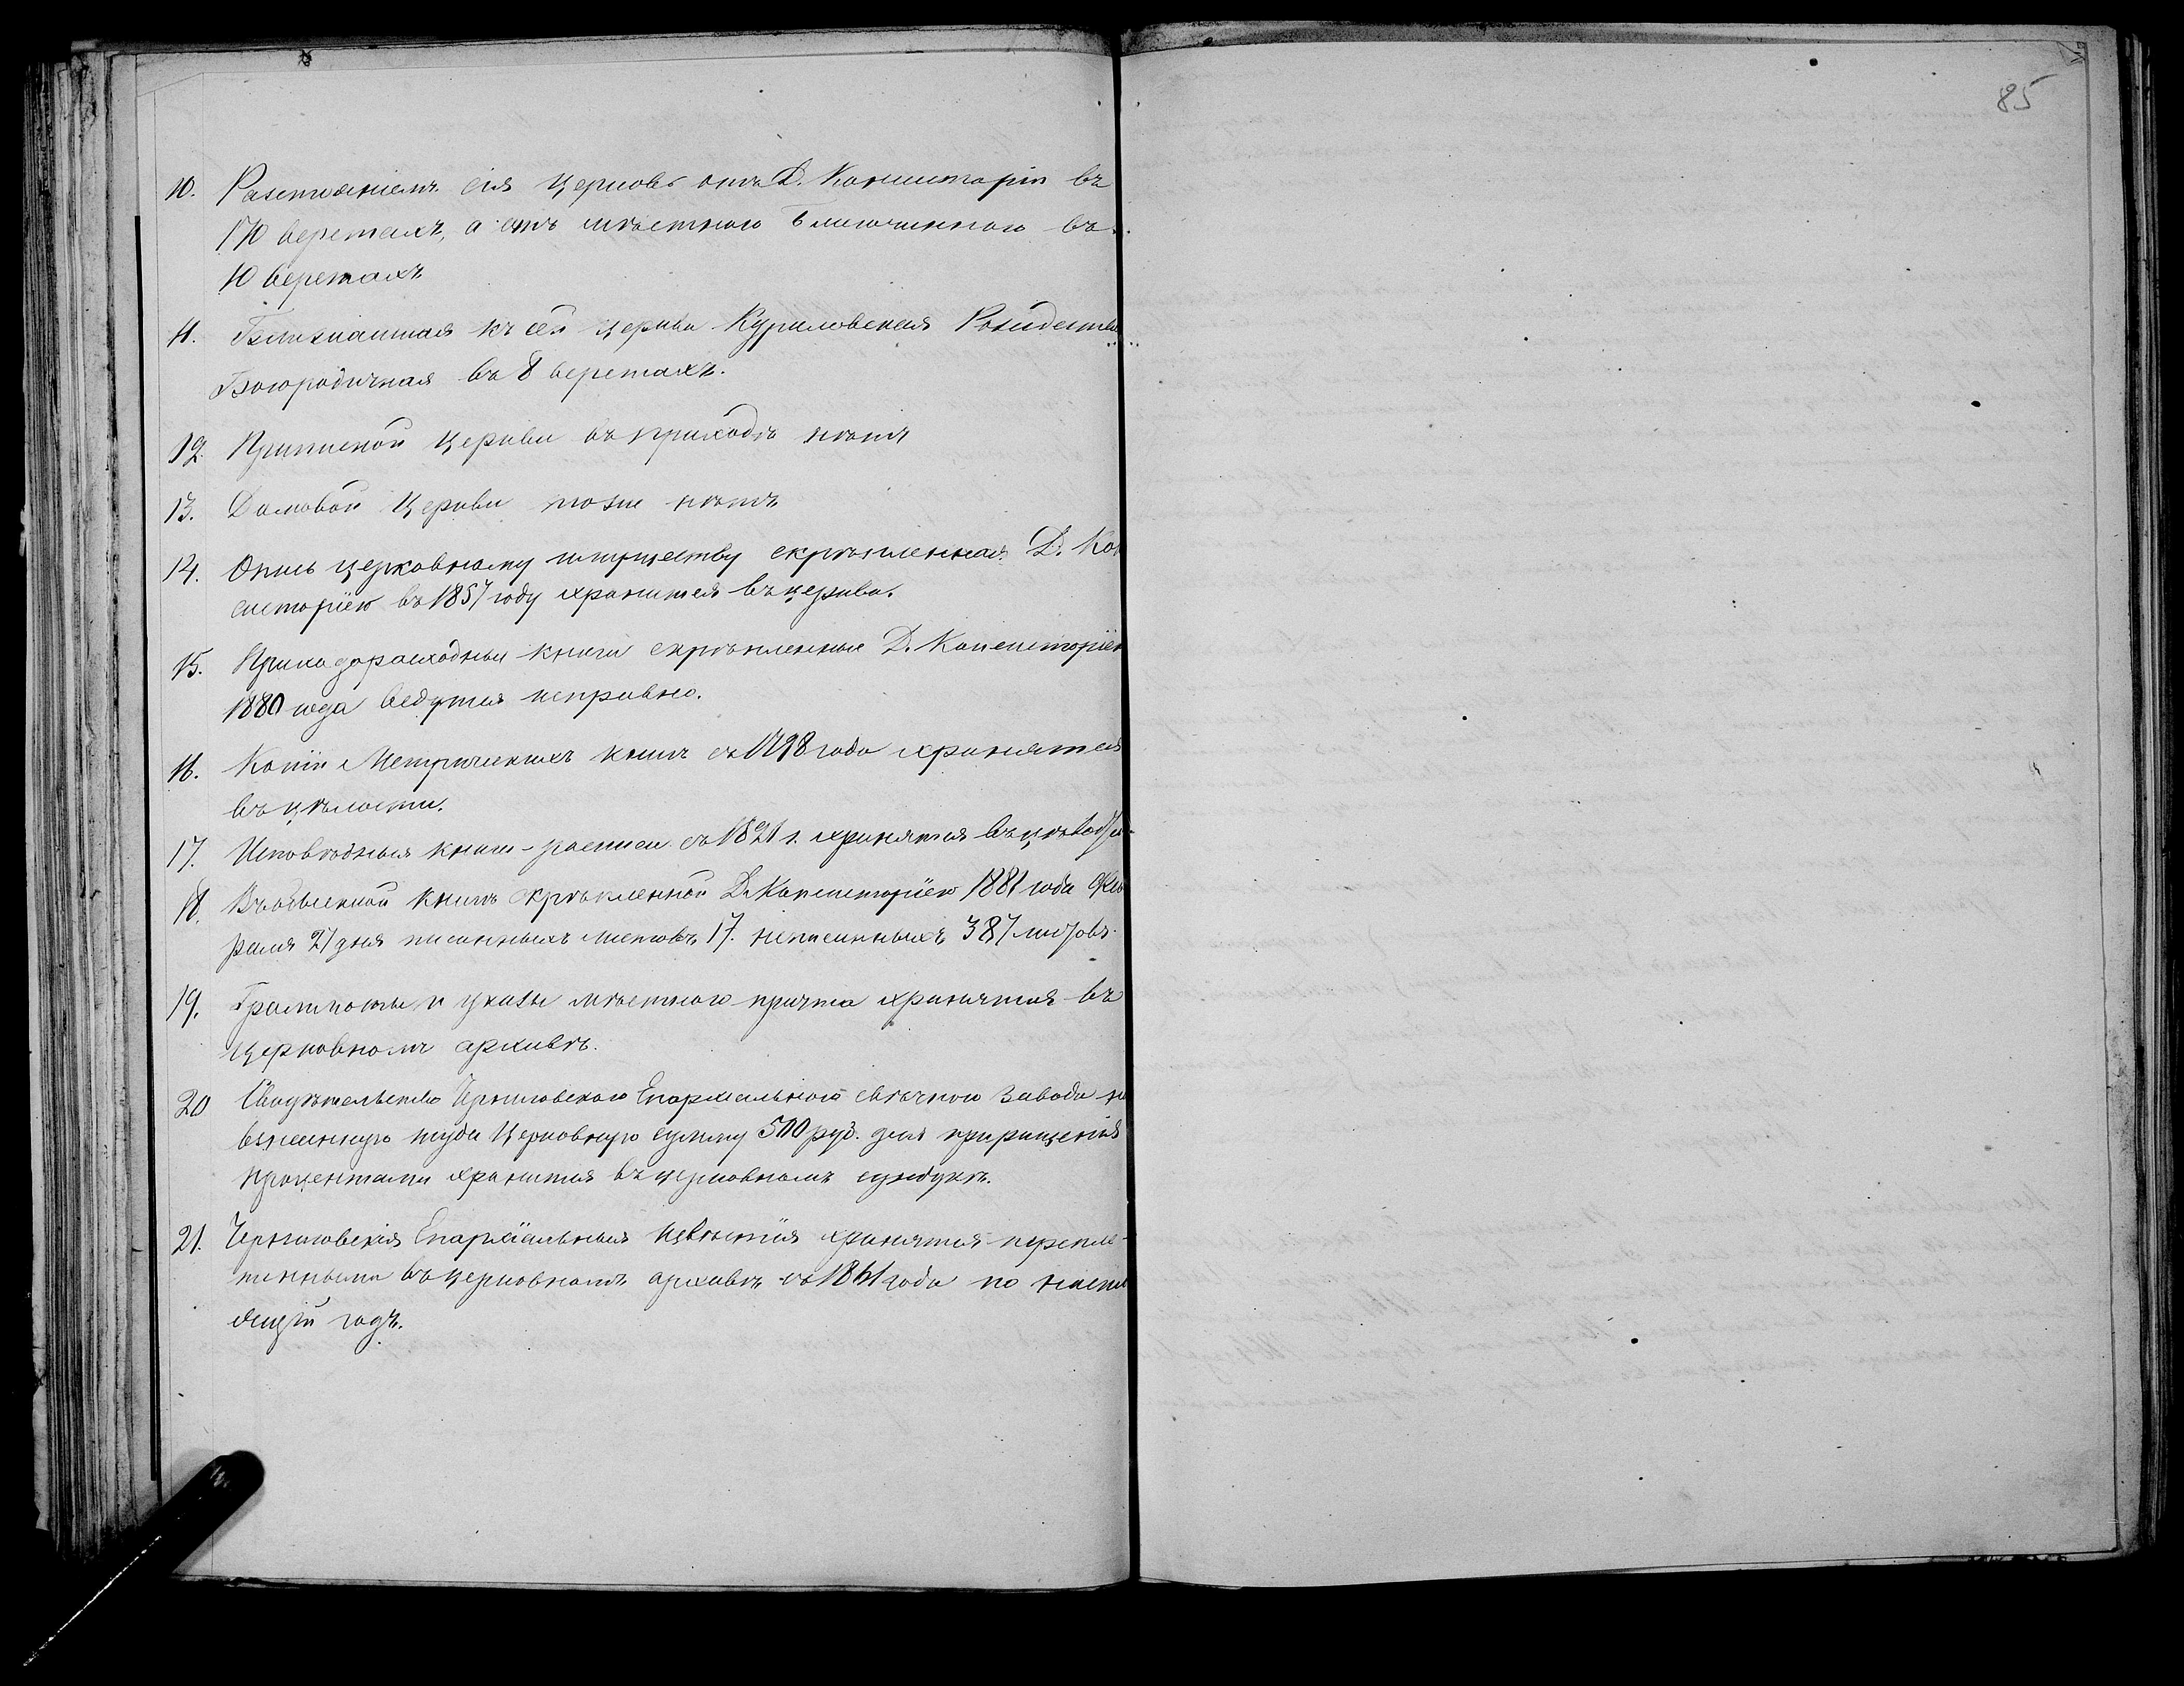 85
10. Разстояніемъ сія церковь отъ Д. Консисторіи въ
170 верстахъ, а отъ мѣстнаго Благочиннаго въ
10 верстахъ
11. Ближайшая къ сей церкви Куриловская Рождество
Богородичная въ 8 верстахъ.
12. Приписной церкви въ приходѣ нѣтъ
13. Домовой церкви тоже нѣтъ
14. Опись церковному имуществу скрѣпленная Д. Кон
систоріею въ 1857 году хранится въ церкви.
15. Приходорасходныя книги скрѣпленныя Д. Консисторіею
1880 года ведутся исправно.
16. Копіи Метрическихъ книгъ съ 1798 года хранятся
въ цѣлости.
17. Исповѣдныя книги-росписи съ 1821 г. хранятся въ
18. Въ обыскной книгѣ скрѣпленной Д. Консисторіею 1881 года Фев
раля 27 дня писанныхъ листовъ 17. неписанныхъ 387 листовъ.
19. Граммоты и указы мѣстнаго причта хранятся въ
церковномъ архивѣ.
20 Свидѣтельство Черниговскаго Епархіальнаго свѣчнаго завода на
взнесенную туда церковную сумму 500 руб. для приращенія
процентами хранится въ церковномъ сундукѣ.
21. Черниговскія Епархіальныя извѣстія хранятся перепле-
тенными въ церковномъ архивѣ съ 1861 года по насто
ящій годъ.